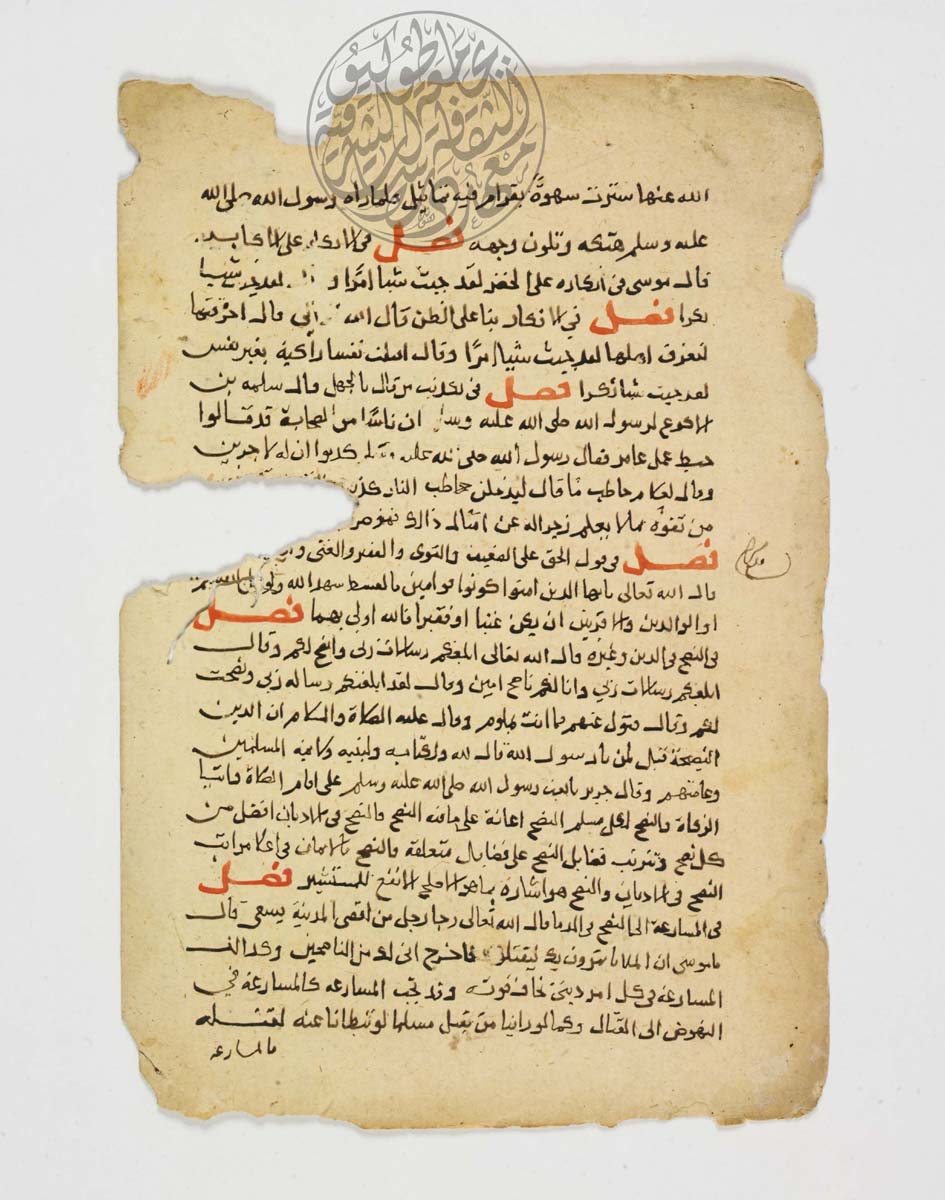 الله عنها سترت سهوة بقرام فيه تماثيل فلما راه رسول الله صلى الله
عليه وسلم هتكه وتلون وجهه فصل في الانكار على الاكابر
قال موسى في انكاره على الخضر لقد جيت شيا امرا و لقد جيت شيا
نكرا فصل في الانكار بنا على الظن قال الله قال اخرقتها
لتغرق اهلها لقد جيت شيا امرا وقال اقتلت نفسا زاكية بغير نفس
لقد جيت شيا نكرا فصل في تكذيب من قال بالجهل قال سلمه بن
الاكوع لرسول الله صلى الله عليه وسلم ان ناسا من الصحابة قد قالوا
حبط عمل عامر فقال رسول الله صلى الله عليه وسلم كذبوا ان له لاجرين
وقال لغلام حاطب لما قال ليدخلن حاطب النار كذبت
من تفوه بما لا يعلم زجرا له عن امثال ذلك فهو
فصل في قول الحق على الضعيف والقوى والفقير والغنى
قال الله تعالى يايها الذين امنوا كونوا قوامين بالقسط شهدا لله ولو على انفسكم
او الوالدين والاقربين ان يكن غنيا او فقيرا فالله اولى بهما فصل
في النصح في الدين وغيره قال الله تعالى ابلغكم رسالات ربي وانصح لكم وقال
ابلغكم رسالات ربي وانا لكم ناصح امين وقال لقد ابلغتكم رسالة ربي ونصحت
لكم وقال فتول عنهم فما انت بملوم وقال عليه الصلاة والسلام ان الدين
النصيحة قيل لمن يا رسول الله قال لله ولكتابه ولنبيه ولايمة المسلمين
وعامتهم وقال جرير بايعت رسول الله صلى الله عليه وسلم على اقام الصلاة وايتا
الزكاة والنصح لكل مسلم النصح اعانة على ما فيه النصح والنصح في الاديان افضل من
كل نصح وتترتب فضايل النصح على فضايل متعلقه والنصح بالايمان في اعلا مراتب
النصح في الاديان والنصح هو اشارة بما هو الاصلح الانفع للمستشير فصل
في المسارعة الى النصح في الدما قال الله تعالى وجا رجل من اقصى المدينة يسعى قال
ياموسى ان الملا ياتمرون بك ليقتلوك فاخرج انى لك من الناصحين وكذلك
المسارعة في كل امر ديني يخاف فوته وقد تجب المسارعه كالمسارعة في
النهوض الى القتال وكما لو راينا من يقتل مسلما لو تبطانا عنه لقتله
فالمسارعه